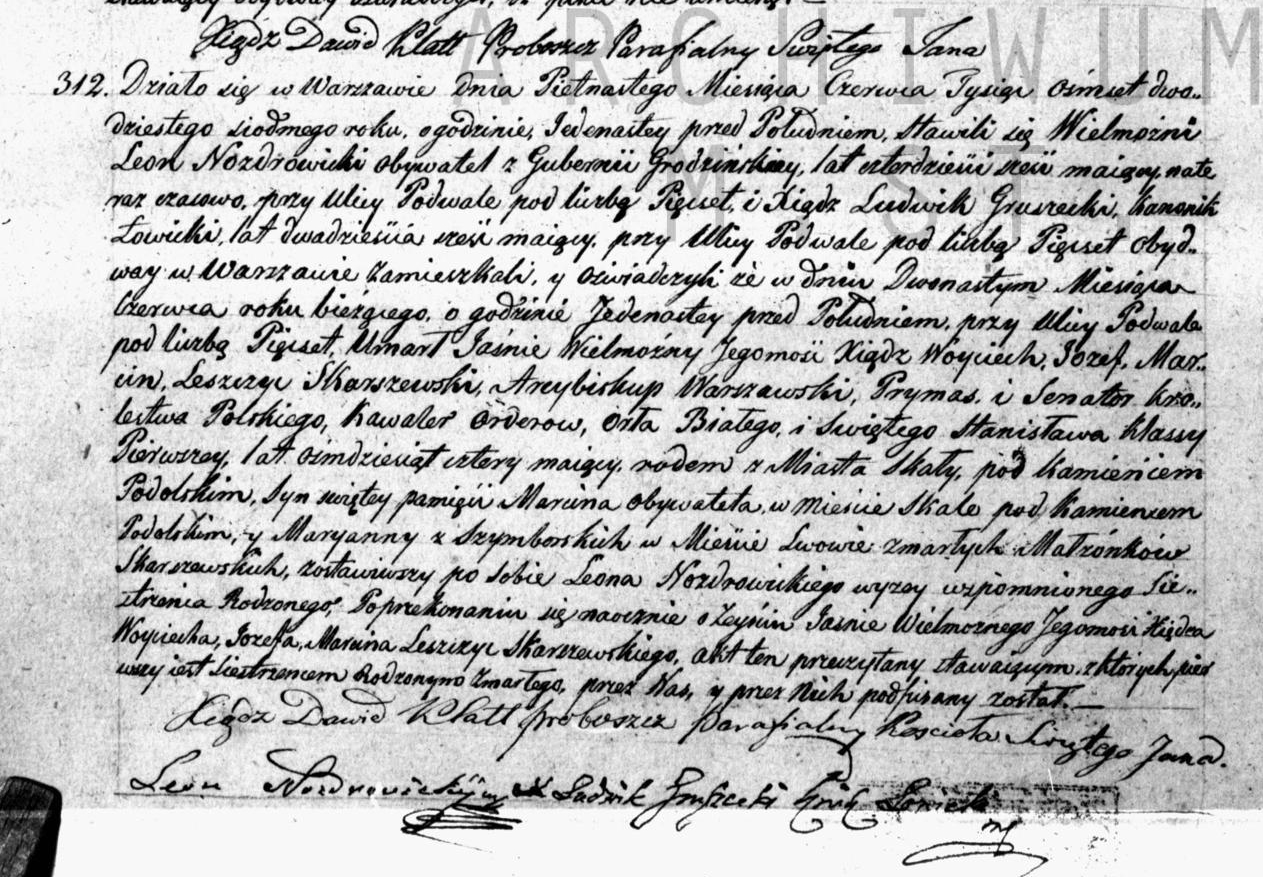 Xiądz Dawid Klatt Proboszcz Parafialny Swiętego Jana
312. Działo się w Warszawie dnia Pietnastego Miesiąca Czerwca Tysiąc ośmset dwo„
dziestego siodmego roku, o godzinie, Jedenastey przed Południem, stawili się Wielmożni
Leon Nozdrowicki obywatel z Gubernii Grodzińskiey, lat czterdzieści sześć maiący, nate
raz czasowo, przy Ulicy Podwale pod liczbą Pięcset, i Xiądz Ludwik Gruszecki, Kanonik
Łowicki, lat dwadzieścia sześć maiący, przy Ulicy Podwale pod liczbą Pięcset obyd„
way w Warszawie zamieszkali, y oświadczyli że w dniu Dwonastym Miesiąca
Czerwca roku bieżącego, o godzinie Jedenastey przed Południem, przy Ulicy Podwale
pod liczbą Pięcset, Umarł Jaśnie Wielmożny Jegomość Xiądz Woyciech, Jozef, Mar„
cin, Leszczyc Skarszewski, Arcybiskup Warszawski, Prymas, i Senator Kro„
lestwa Polskiego, Kawaler Orderow, Orła Białego, i Swiętego Stanisława Klassy
Pierwszey, lat ośmdziesiąt cztery maiący, rodem z Miasta Skały, pod Kamieńcem
Podolskim, syn swiętey pamięci Marcina obywatela, w mieście Skale pod Kamieńcem
Podolskim, y Maryanny z Szymborskich w Mieście Lwowie zmarłych Małżonków
Skarszewskich, zostawiwszy po sobie Leona Nozdrowickiego wyzey wzpomnionego Sie„
strzenia Rodzonego. Poprzekonaniu się naocznie o Zeyściu Jaśnie Wielmożnego Jegomości Xiędza
Woyciecha, Jozefa, Marcina Leszczyc Skarszewskiego, akt ten przeczytany stawaiącym, z których pier
wszy iest Siestrzencem Rodzonym Zmarłego, przez Nas, y przez Nich podpisany został. —
Xiądz Dawid Klatt Proboszcz Parafialny Koscioła Swiętego Jana.
Leon Nozdrowicki Ludwik Gruszecki Łowicki
ARCHIWUM